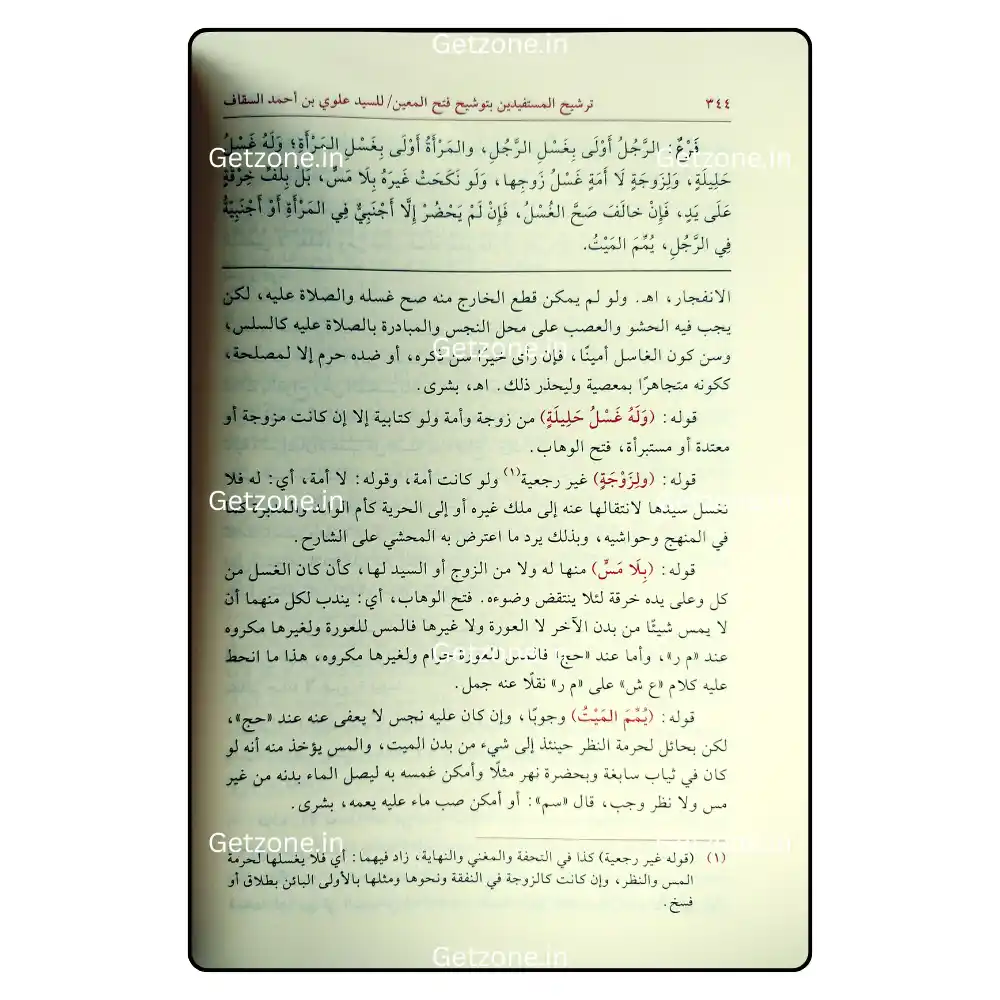 Getzone.in
٣٤٤ ترشيح المستفيدين بتوشيح فتح المعين/ للسيد علوي بن أحمد السقاف
فَرْعٌ: الرَّجُلُ أَوْلَى بِغَسْلِ الرَّجُلِ، والمَرْأَةُ أَوْلَى بِغَسْلِ المَرْأَةِ؛ وَلَهُ غَسْلُ
Getzone.in Getzone.in
حَلِيلَةٍ، وَلِزَوجَةٍ لَا أَمَةٍ غَسْلُ زَوجِها، وَلَو نَكَحَتْ غَيرَهُ بِلَا مَسٍّ، بَلْ بِلَفِّ خِرْقَةٍ
عَلَى يَدٍ، فَإِنْ خالَفَ صَحَّ الغُسْلُ، فَإِنْ لَمْ يَحْضُرْ إِلَّا أَجْنَبِيٌّ فِي المَرْأَةِ أَوْ أَجْنَبِيَّةٌ
فِي الرَّجُلِ، يُمِّمَ المَيْتُ.
الانفجار، اهـ. ولو لم يمكن قطع الخارج منه صح غسله والصلاة عليه، لكن
يجب فيه الحشو والعصب على محل النجس والمبادرة بالصلاة عليه كالسلس،
Getzone.in
وسن كون الغاسل أمينًا، فإن رأى خيرًا سن ذكره، أو ضده حرم إلا لمصلحة،
ككونه متجاهرًا بمعصية وليحذر ذلك. اهـ، بشرى.
قوله: (وَلَهُ غَسْلُ حَلِيلَةٍ) من زوجة وأمة ولو كتابية إلا إن كانت مزوجة أو
معتدة أو مستبرأة، فتح الوهاب.
قوله: (ولِزَوْجَةٍ) غير رجعية(١) ولو كانت أمة، وقوله: لا أمة، أي: له فلا
Getzone.in Getzone.in
تغسل سيدها لانتقالها عنه إلى ملك غيره أو إلى الحرية كأم الولد والمدبر، كما
في المنهج وحواشيه، وبذلك يرد ما اعترض به المحشي على الشارح.
قوله: (بِلَا مَسٍّ) منها له ولا من الزوج أو السيد لها، كأن كان الغسل من
كل وعلى يده خرقة لئلا ينتقض وضوءه. فتح الوهاب، أي: يندب لكل منهما أن
لا يمس شيئًا من بدن الآخر لا العورة ولا غيرها فالمس للعورة ولغيرها مكروه
عند «م ر»، وأما عند «حج» فالمس للعورة حرام ولغيرها مكروه، هذا ما انحط
Getzone.in
عليه كلام «ع ش» على «م ر» نقلًا عنه جمل.
قوله: (يُمِّمَ المَيْتُ) وجوبًا، وإن كان عليه نجس لا يعفى عنه عند «حج»،
لكن بحائل لحرمة النظر حينئذ إلى شيء من بدن الميت، والمس يؤخذ منه أنه لو
كان في ثياب سابغة وبحضرة نهر مثلًا وأمكن غمسه به ليصل الماء بدنه من غير
مس ولا نظر وجب، قال «سم»: أو أمكن صب ماء عليه يعمه، بشرى.
Getzone.in Getzone.in
(١) (قوله غير رجعية) كذا في التحفة والمغني والنهاية، زاد فيهما: أي فلا يغسلها لحرمة
المس والنظر، وإن كانت كالزوجة في النفقة ونحوها ومثلها بالأولى البائن بطلاق أو
فسخ.
Getzone.in